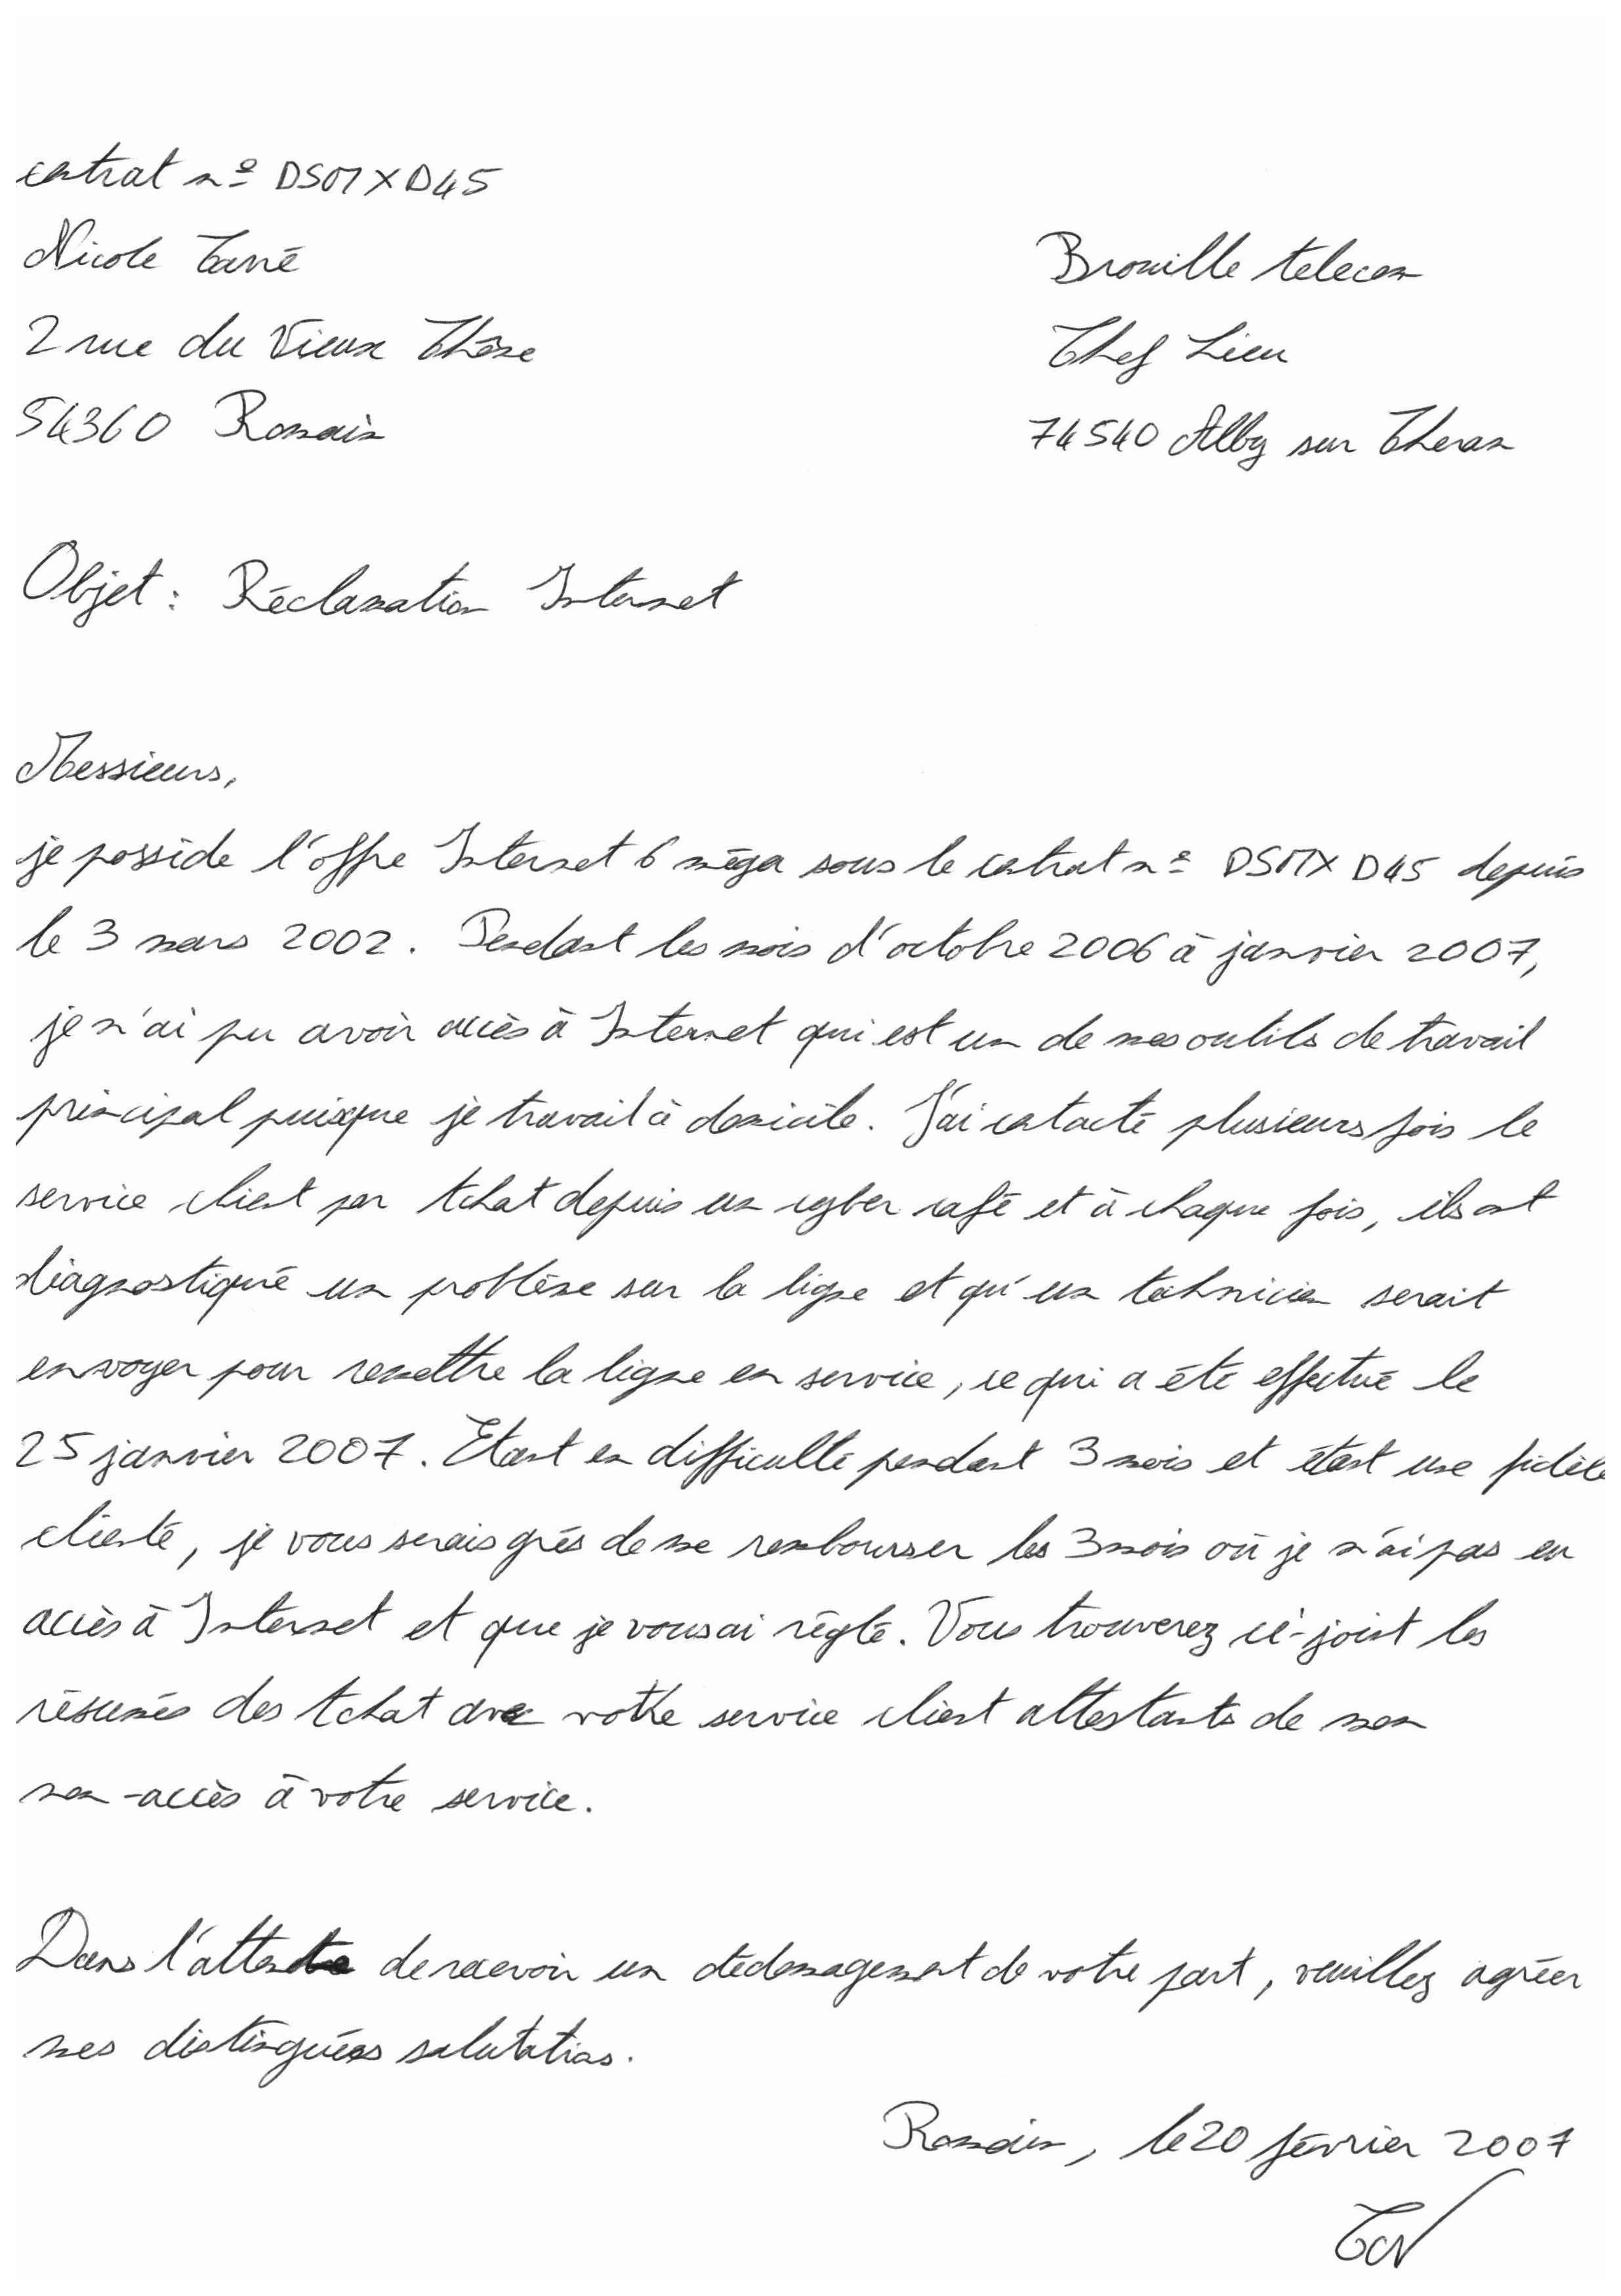 contrat nº DSMXD45
Nicole Carré
2 rue du Vieux Chêne
54360 Romain
Brouille telecom
Chef Lieu
74540 Alby sur Cheran
Objet : Réclamation Internet
Messieurs,
je possède l'offre Internet 6 méga sous le contrat nº DSMX D45 depuis
le 3 mars 2002. Pendant les mois d'octobre 2006 à janvier 2007,
je n'ai pu avoir accès à Internet qui est un de mes outils de travail
principal puisque je travail à domicile. J'ai contacté plusieurs fois le
service client par tchat depuis un cyber café et à chaque fois, ils ont
diagnostiqué un problème sur la ligne et qu'un technicien serait
envoyer pour remettre la ligne en service, ce qui a été effectué le
25 janvier 2007. Etant en difficulté pendant 3 mois et étant une fidèle
cliente, je vous serais grés de me rembourser les 3 mois où je n'ai pas eu
accès à Internet et que je vous ai réglé. Vous trouverez ci-joint les
résumés des tchat avec votre service client attestants de mon
non-accès à votre service.
Dans l'attente de recevoir un dédomagement de votre part, veuillez agréer
mes distinguées salutations.
Romain, le 20 février 2007